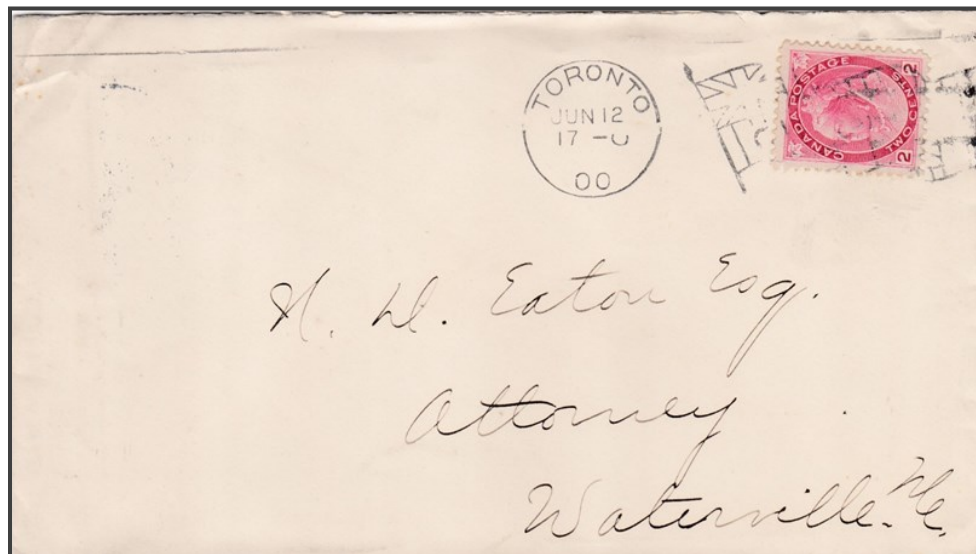 TORONTO
JUN 12
17 -0
00
CANADA POSTAGE
TWO CENTS
2 2
H. D. Eaton Esq.
Attorney
Waterville. Me.